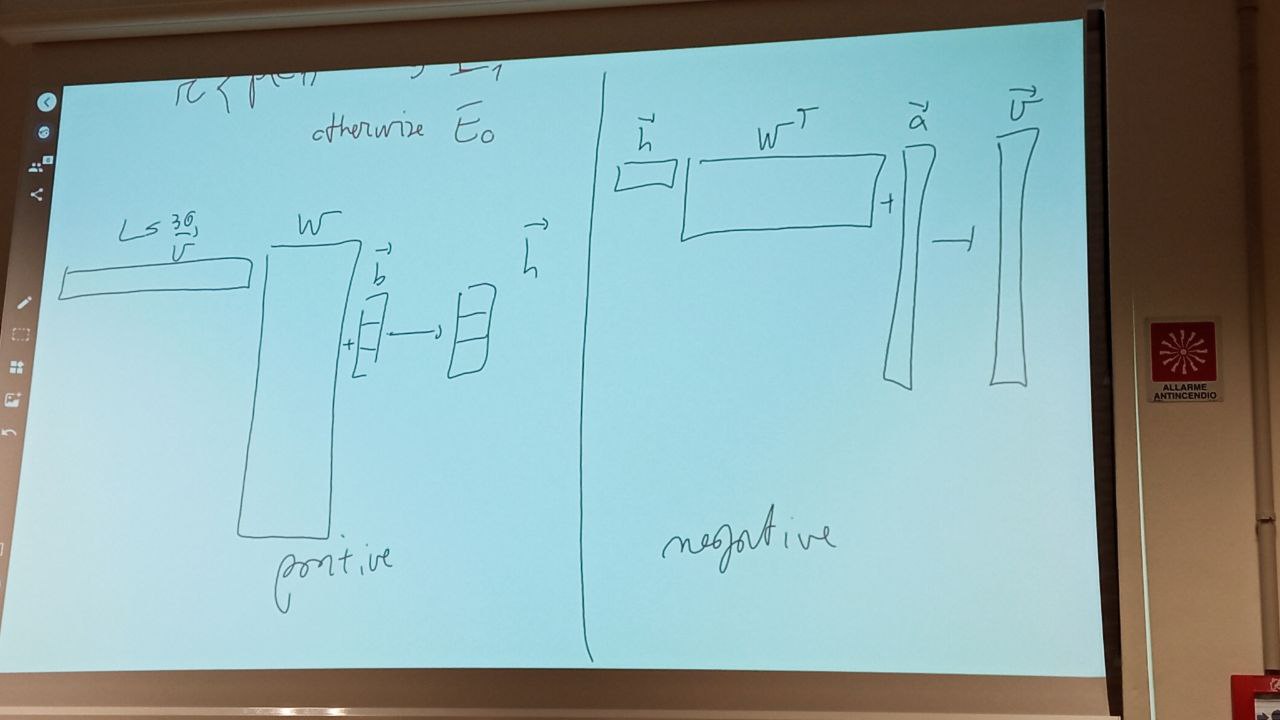 otherwize E₀
W
b⃗
h⃗
+
positive
h⃗
Wᵀ
a⃗
v⃗
+
negative
ALLARME
ANTINCENDIO